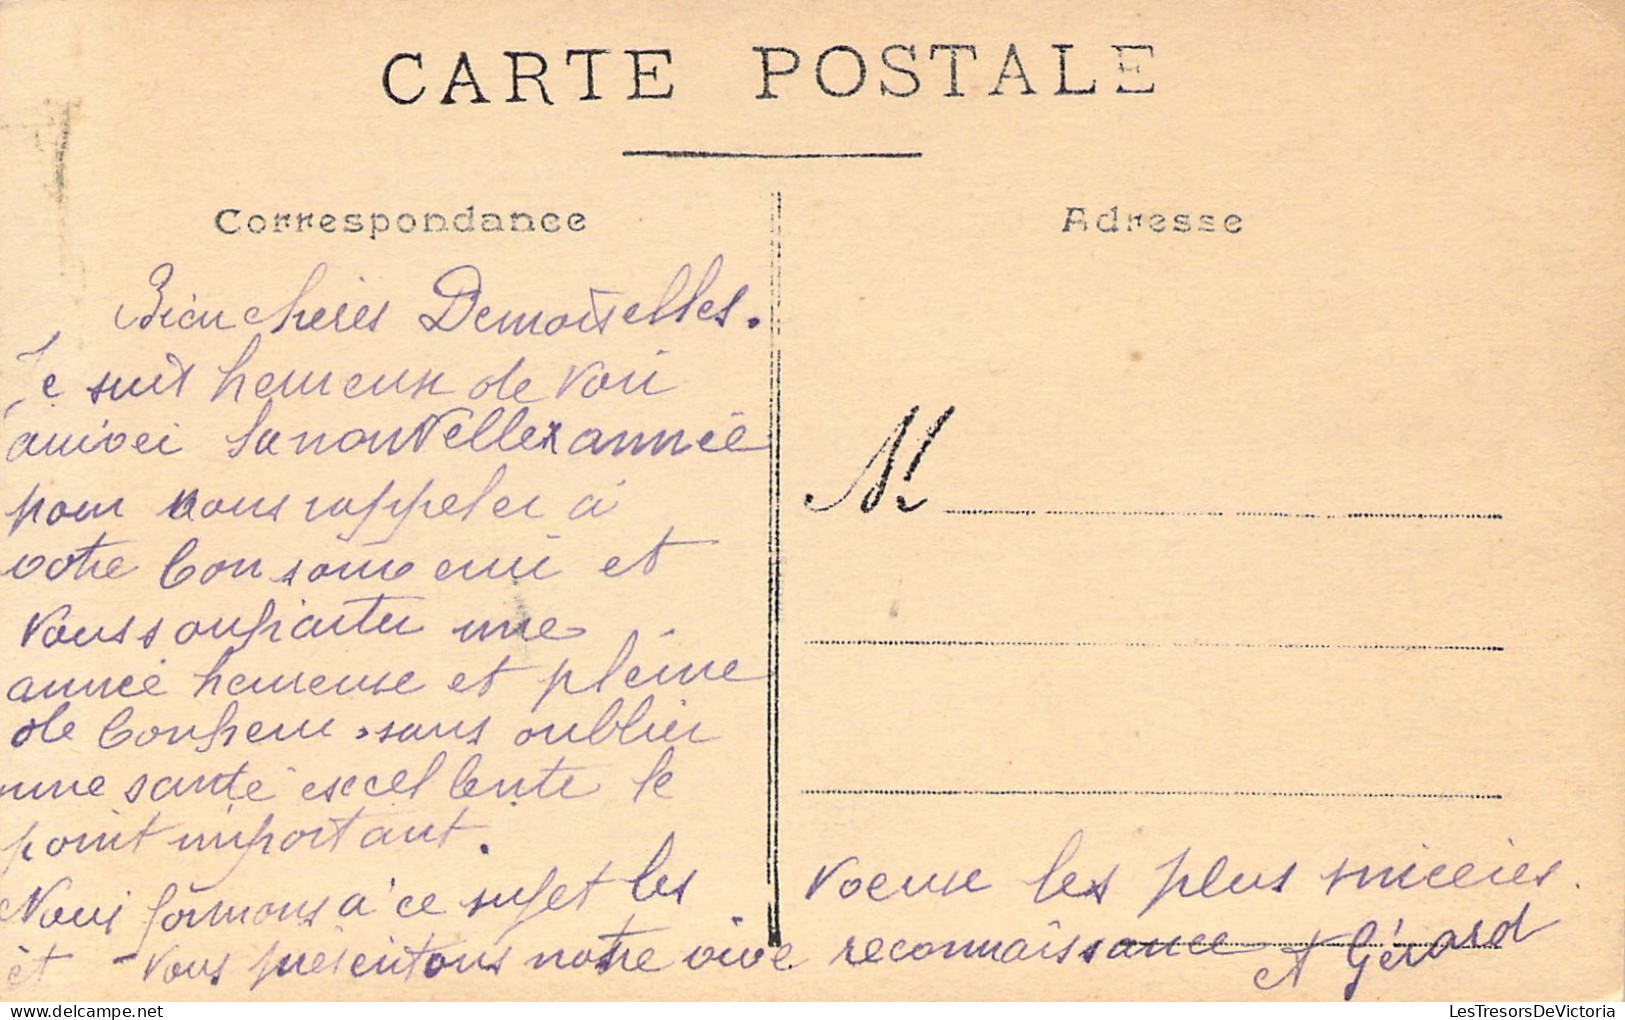 CARTE POSTALE
Correspondance
Adresse
Bien chères Demoiselles.
Je suis heureux de voir
arriver la nouvelle année
pour vous rappeler à
votre bon souvenir et
vous souhaiter une
année heureuse et pleine
de bonheur, sans oublier
une santé excellente le
point important.
Nous formons à ce sujet les
voeux les plus sincères.
et vous présentons notre vive reconnaissance A Gérard
M
LesTresorsDeVictoria